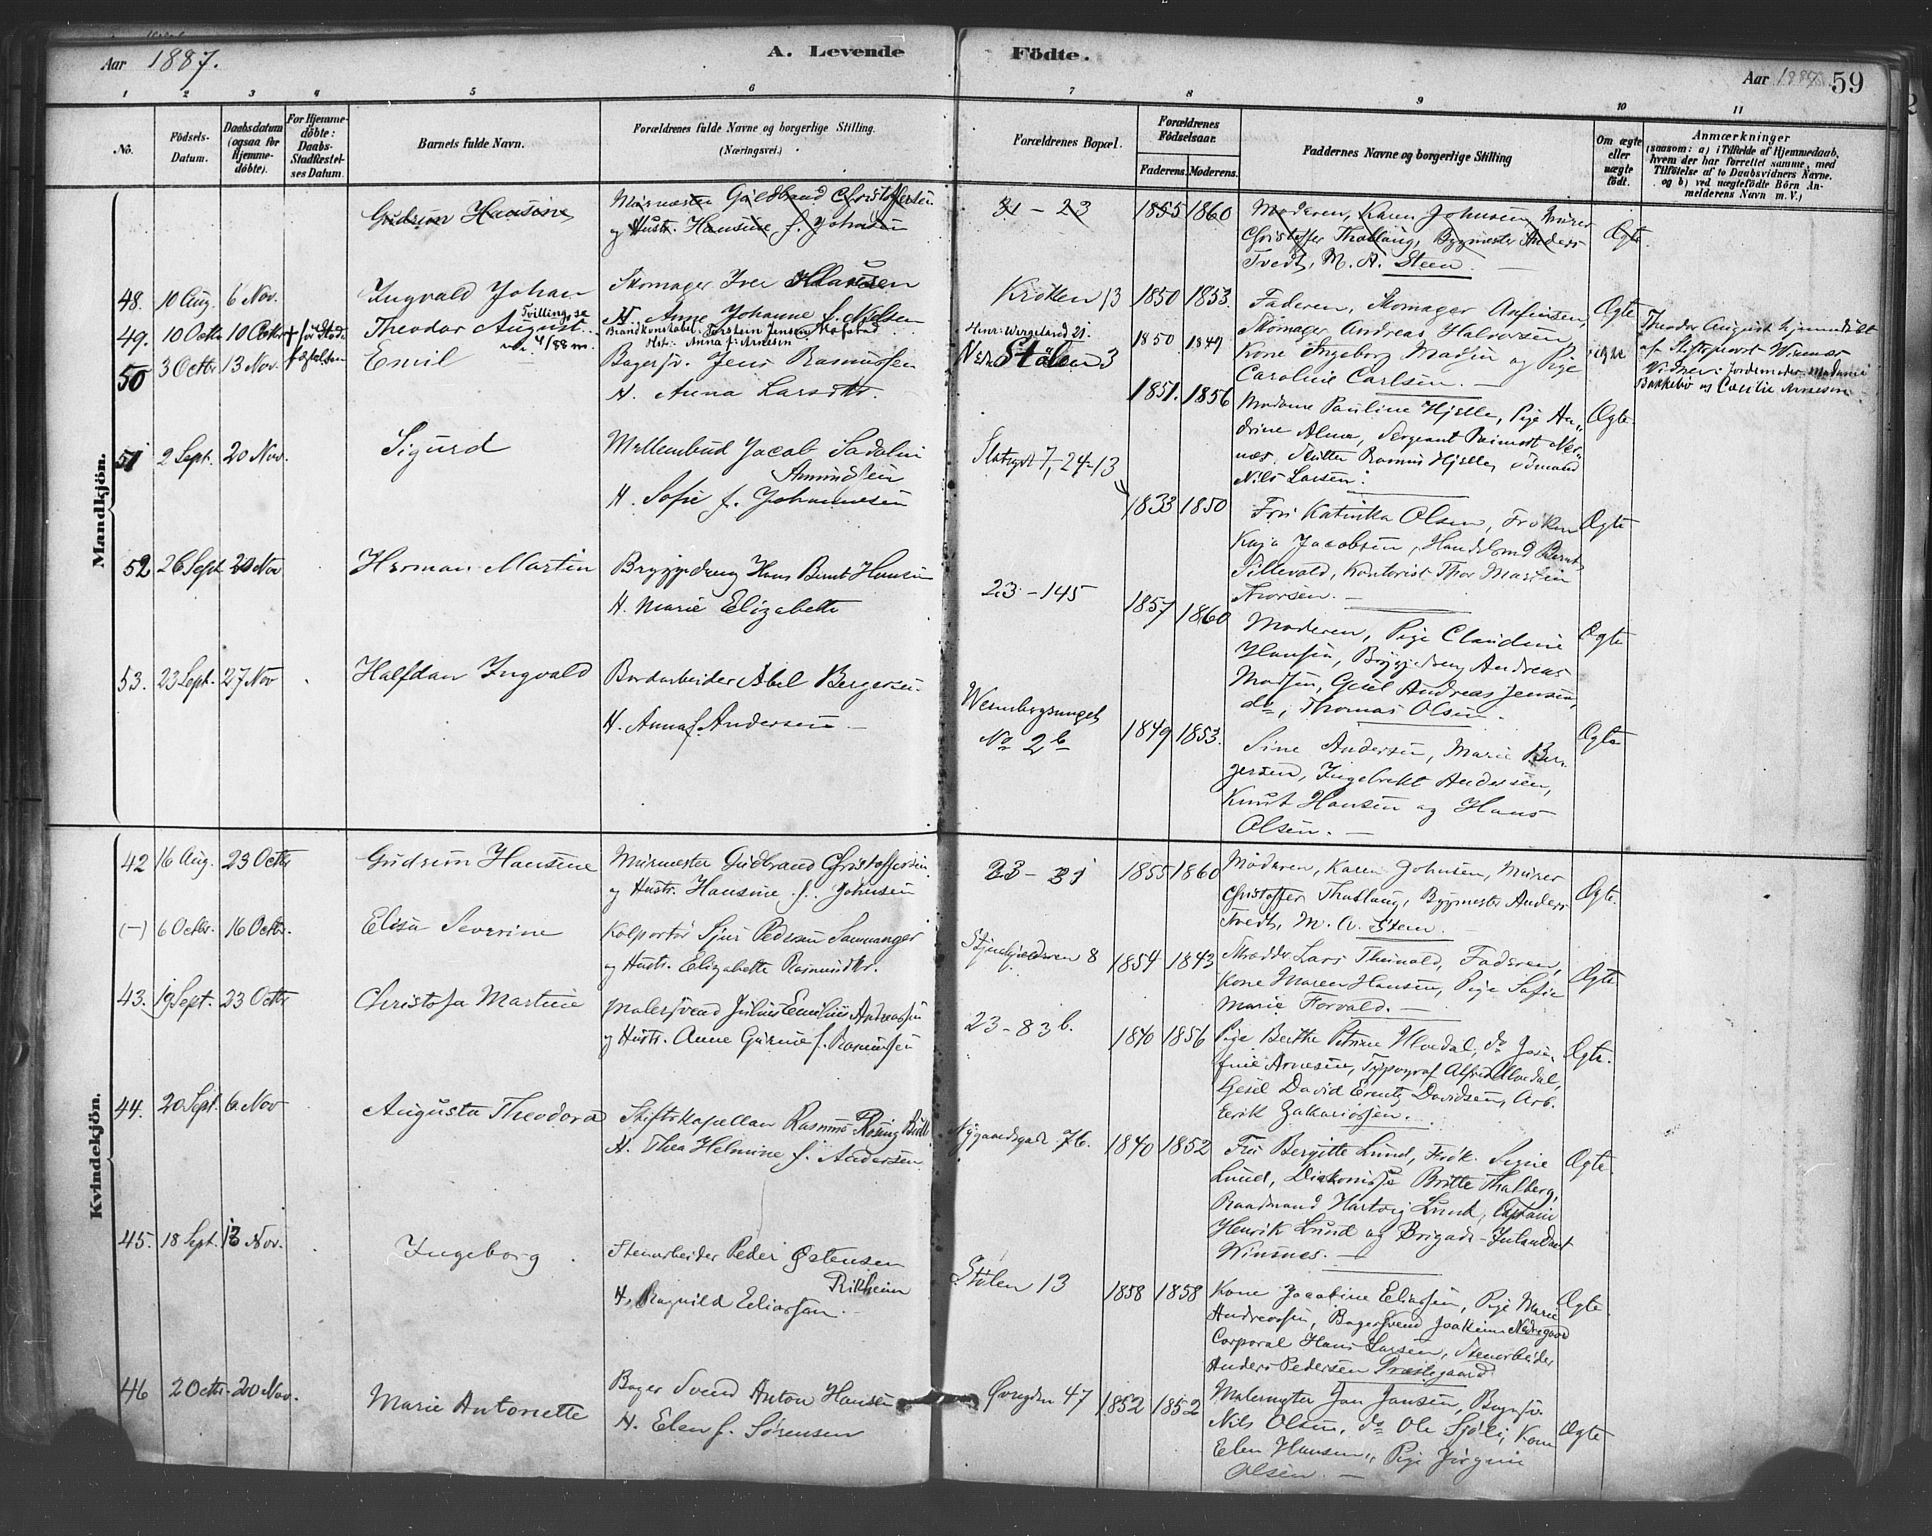 Aar 1887.
A. Levende Födte.
Aar 1887. 59
1 2 3 4 5 6 7 8 9 10 11
No.
Födsels-Datum.
Daabsdatum (ogsaa for Hjemmedöbte).
For Hjemmedöbte: Daabs-Stadfæstelses Datum.
Barnets fulde Navn.
Forældrenes fulde Navne og borgerlige Stilling. (Næringsvei.)
Forældrenes Bopæl.
Forældrenes Födselsaar.
Faderens. Moderens.
Faddernes Navne og borgerlige Stilling
Om ægte eller uægte födt.
Anmærkninger
(saasom: a) i Tilfælde af Hjemmedaab,
hvem der har forrettet samme, med
Tilföielse af to Daabsvidners Navne,
og b) ved uægtefödte Börn Anmelderens Navn m. V.)
Mandkjön.
Gudrun Hansine
Murmester Guldbrand Christoffersen
og Hustr. Hansine f. Johnsen
31 - 23
1855 1860
Moderen, Karen Johnsen, Murer
Christoffer Thallaug, Bygmester Anders
Tvedt, M. A. Steen.
Ægte
48. 10 Aug. 6 Nov.
Ingvald Johan
Skomager Iver Hansen
H. Anne Johanne f. Nilsen
Kroken 13
1850 1853.
Faderen, Skomager
Skomager Andreas Halvorsen,
Kone Ingeborg Madsen og Pige
Caroline Carlsen.
Ægte
49. 10 Octbr 10 Octbr
Theodor August Tvilling, se
Brandkonstabel Torstein Jensen
Hst. Anna f. Arnesen
Henr: Wergeland 21.
1850. 1849
ægte
Theodor August hjemmedøbt
af Stiftsprovst Wisnæs
Vidner: Jordemoder Madame
Bakkebø og Cæcilie Arnesen
50 3 Octbr 13 Nov.
Emil
Bagersv. Jens Rasmussen
H. Anna Larsdtr.
Stølen 3
1851. 1856
Madame Pauline Hjelle, Pige An-
drine Alma, Sergeant
Rasmus Hjelle,
Nils Larsen.
Ægte
51 2 Sept. 20 Nov.
Sigurd
Mellembud Jacob Sadolin
Amundsen
H. Sofie f. Johannesen
7, 24-13
1833 1850
Frøi Katinka Olsen, Frøken
Kaja Jacobsen, Handelsmd Bernt
Sillevold, Kontorist Thor Martin
Thorsen.
Ægte
52 26 Sept 20 Nov
Herman Martin
Bryggedreng Hans Bernt Hansen
H. Marie Elizabeth
23 - 145
1857 1860
Moderen, Pige Claudine
Hansen, Bryggedreng Andreas
Madsen, Gsel Andreas Jensen,
do, Thomas Olsen.
Ægte
53. 23 Sept. 27 Nov
Halfdan Ingvald
Bordarbeider Abel Bergersen
H. Anna f. Andersen
No 2b
1849 1853.
Sine Andersen, Marie Ber-
gersen, Ingebrekt Andersen,
Knut Hansen og Hans
Olsen.
Ægte
Kvindekjön.
42 16 Aug. 23 Octbr
Gudrun Hansine
Murmester Gudbrand Christoffersen
og Hustr. Hansine f. Johnsen
23 - 31
1855 1860
Moderen, Karen Johnsen, Murer
Christoffer Thallaug, Bygmester Anders
Tvedt, M. A. Steen.
Ægte.
(-) 6 Octbr. 16 Octbr.
Elisa Severine
Kolportør Sjur Pedersen Samnanger
og Hustr. Elizabeth Rasmundtr.
8
1854 1843
Skrædder Lars Theinold, Faderen,
Kone Maren Hansen, Pige Sofie
Marie Forvald.
Ægte
43. 19 Sept. 23 Octbr
Christofa Martine
Malersvend Julius Emilius Andreassen
og Hustr. Anne Gurine f. Rasmussen
23-83b.
1840 1856
Pige Berthe Petrine Hovdal, do Jose-
fine Arnesen, Typograf Alfred Hovdal,
Gesel David Erentz Davidsen, Arb.
Eerik Zakariassen.
Ægte.
44. 20 Sept. 6 Nov
Augusta Theodora
Stiftskapellan Rasmus Rosing Bull
H. Thea Helmine f. Andersen
Nygaardsgade 76.
1840 1852
Frú Bergitte Lund, Frøk. Signe
Lund, Diakonisse Britte Thalberg,
Raadmand Hartvig Lund, Captain
Henrik Lund og Brigade-Intendant
Winsnes.
Ægte
45. 18 Sept. 13 Nov.
Ingeborg
Stenarbeider Peder Østensen
Rikheim
H. Ragnild Eliassen
Stølen 13
1858 1858
Kone Jacobine Eliassen, Pige Marie
Andreassen, Bagersvend Joakim Nedregaard
Corporal Hans Larsen, Stenarbeider
Anders Pedersen Præstegaard
Ægte
46 2 Octbr. 20 Nov.
Marie Antonette
Bager Svend Anton Hansen
H. Elen f. Sørensen
Øvregden 47
1852 1852
Malermester Jan Jansen, Bagersv.
Nils Olsen, do Ole Sjøli, Kone
Elen Hansen, Pige Jørgine
Olsen.
Ægte